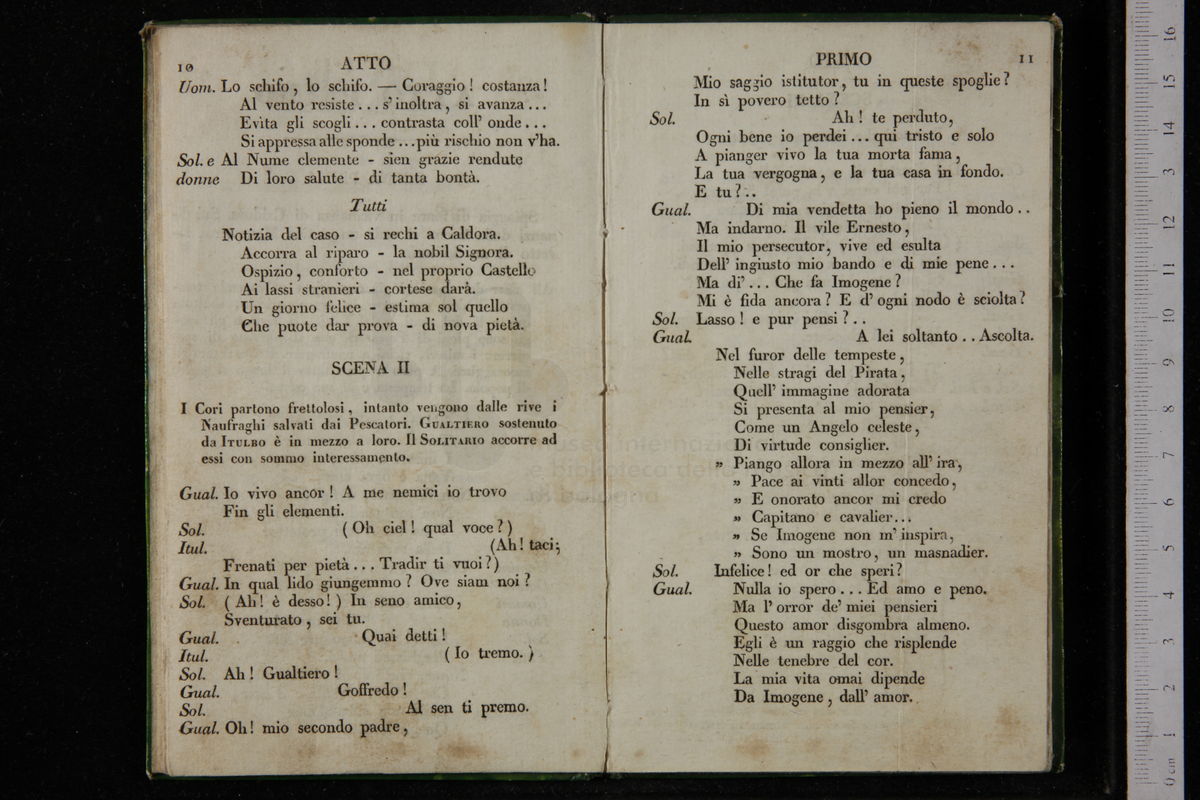 10 ATTO
Uom. Lo schifo, lo schifo. — Coraggio! costanza!
Al vento resiste... s'inoltra, si avanza...
Evita gli scogli... contrasta coll' onde...
Si appressa alle sponde ...più rischio non v'ha.
Sol. e Al Nume clemente - sien grazie rendute
donne Di loro salute - di tanta bontà.
Tutti
Notizia del caso - si rechi a Caldora.
Accorra al riparo - la nobil Signora.
Ospizio, conforto - nel proprio Castello
Ai lassi stranieri - cortese darà.
Un giorno felice - estima sol quello
Che puote dar prova - di nova pietà.
SCENA II
I Cori partono frettolosi, intanto vengono dalle rive i
Naufraghi salvati dai Pescatori. GUALTIERO sostenuto
da ITULBO è in mezzo a loro. Il SOLITARIO accorre ad
essi con sommo interessamento.
Gual. Io vivo ancor! A me nemici io trovo
Fin gli elementi.
Sol. (Oh ciel! qual voce?)
Itul. (Ah! taci;
Frenati per pietà... Tradir ti vuoi?)
Gual. In qual lido giungemmo? Ove siam noi?
Sol. (Ah! è desso!) In seno amico,
Sventurato, sei tu.
Gual. Quai detti!
Itul. (Io tremo.)
Sol. Ah! Gualtiero!
Gual. Goffredo!
Sol. Al sen ti premo.
Gual. Oh! mio secondo padre,
PRIMO 11
Mio saggio istitutor, tu in queste spoglie?
In sì povero tetto?
Sol. Ah! te perduto,
Ogni bene io perdei... qui tristo e solo
A pianger vivo la tua morta fama,
La tua vergogna, e la tua casa in fondo.
E tu?..
Gual. Di mia vendetta ho pieno il mondo..
Ma indarno. Il vile Ernesto,
Il mio persecutor, vive ed esulta
Dell' ingiusto mio bando e di mie pene...
Ma di'... Che fa Imogene?
Mi è fida ancora? E d' ogni nodo è sciolta?
Sol. Lasso! e pur pensi?..
Gual. A lei soltanto.. Ascolta.
Nel furor delle tempeste,
Nelle stragi del Pirata,
Quell' immagine adorata
Si presenta al mio pensier,
Come un Angelo celeste,
Di virtude consiglier.
" Piango allora in mezzo all' ira,
" Pace ai vinti allor concedo,
" E onorato ancor mi credo
" Capitano e cavalier...
" Se Imogene non m' inspira,
" Sono un mostro, un masnadier.
Sol. Infelice! ed or che speri?
Gual. Nulla io spero... Ed amo e peno.
Ma l' orror de' miei pensieri
Questo amor disgombra almeno.
Egli è un raggio che risplende
Nelle tenebre del cor.
La mia vita omai dipende
Da Imogene, dall' amor.
0 cm 1 2 3 4 5 6 7 8 9 10 11 12 13 14 15 16